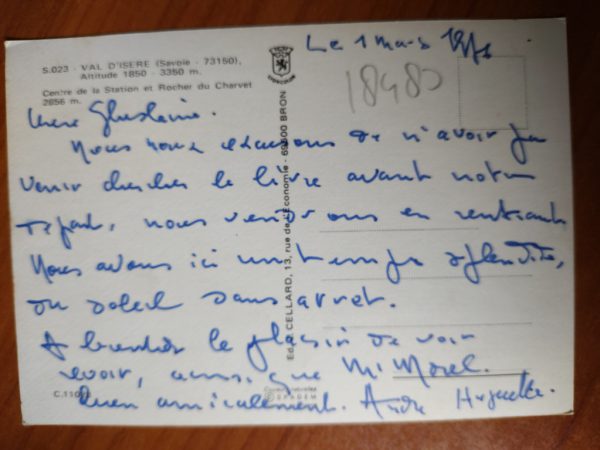 S.023 - VAL D'ISERE (Savoie - 73150),
Altitude 1850 - 3350 m.
Centre de la Station et Rocher du Charvet
2656 m.
Le 1 Mars
18480
Chère Ghislaine.
Nous nous excusons de n'avoir pu
venir chercher le livre avant notre
départ, nous viendrons en rentrant
Nous avons ici un temps splendide,
du soleil sans arret.
A bientôt le plaisir de vous
revoir, ainsi que Mr Morel.
Bien amicalement. André Huguette.
Edit. CELLARD, 13, rue de l'Économie - 69500 BRON
Couleurs naturelles
SPADEM